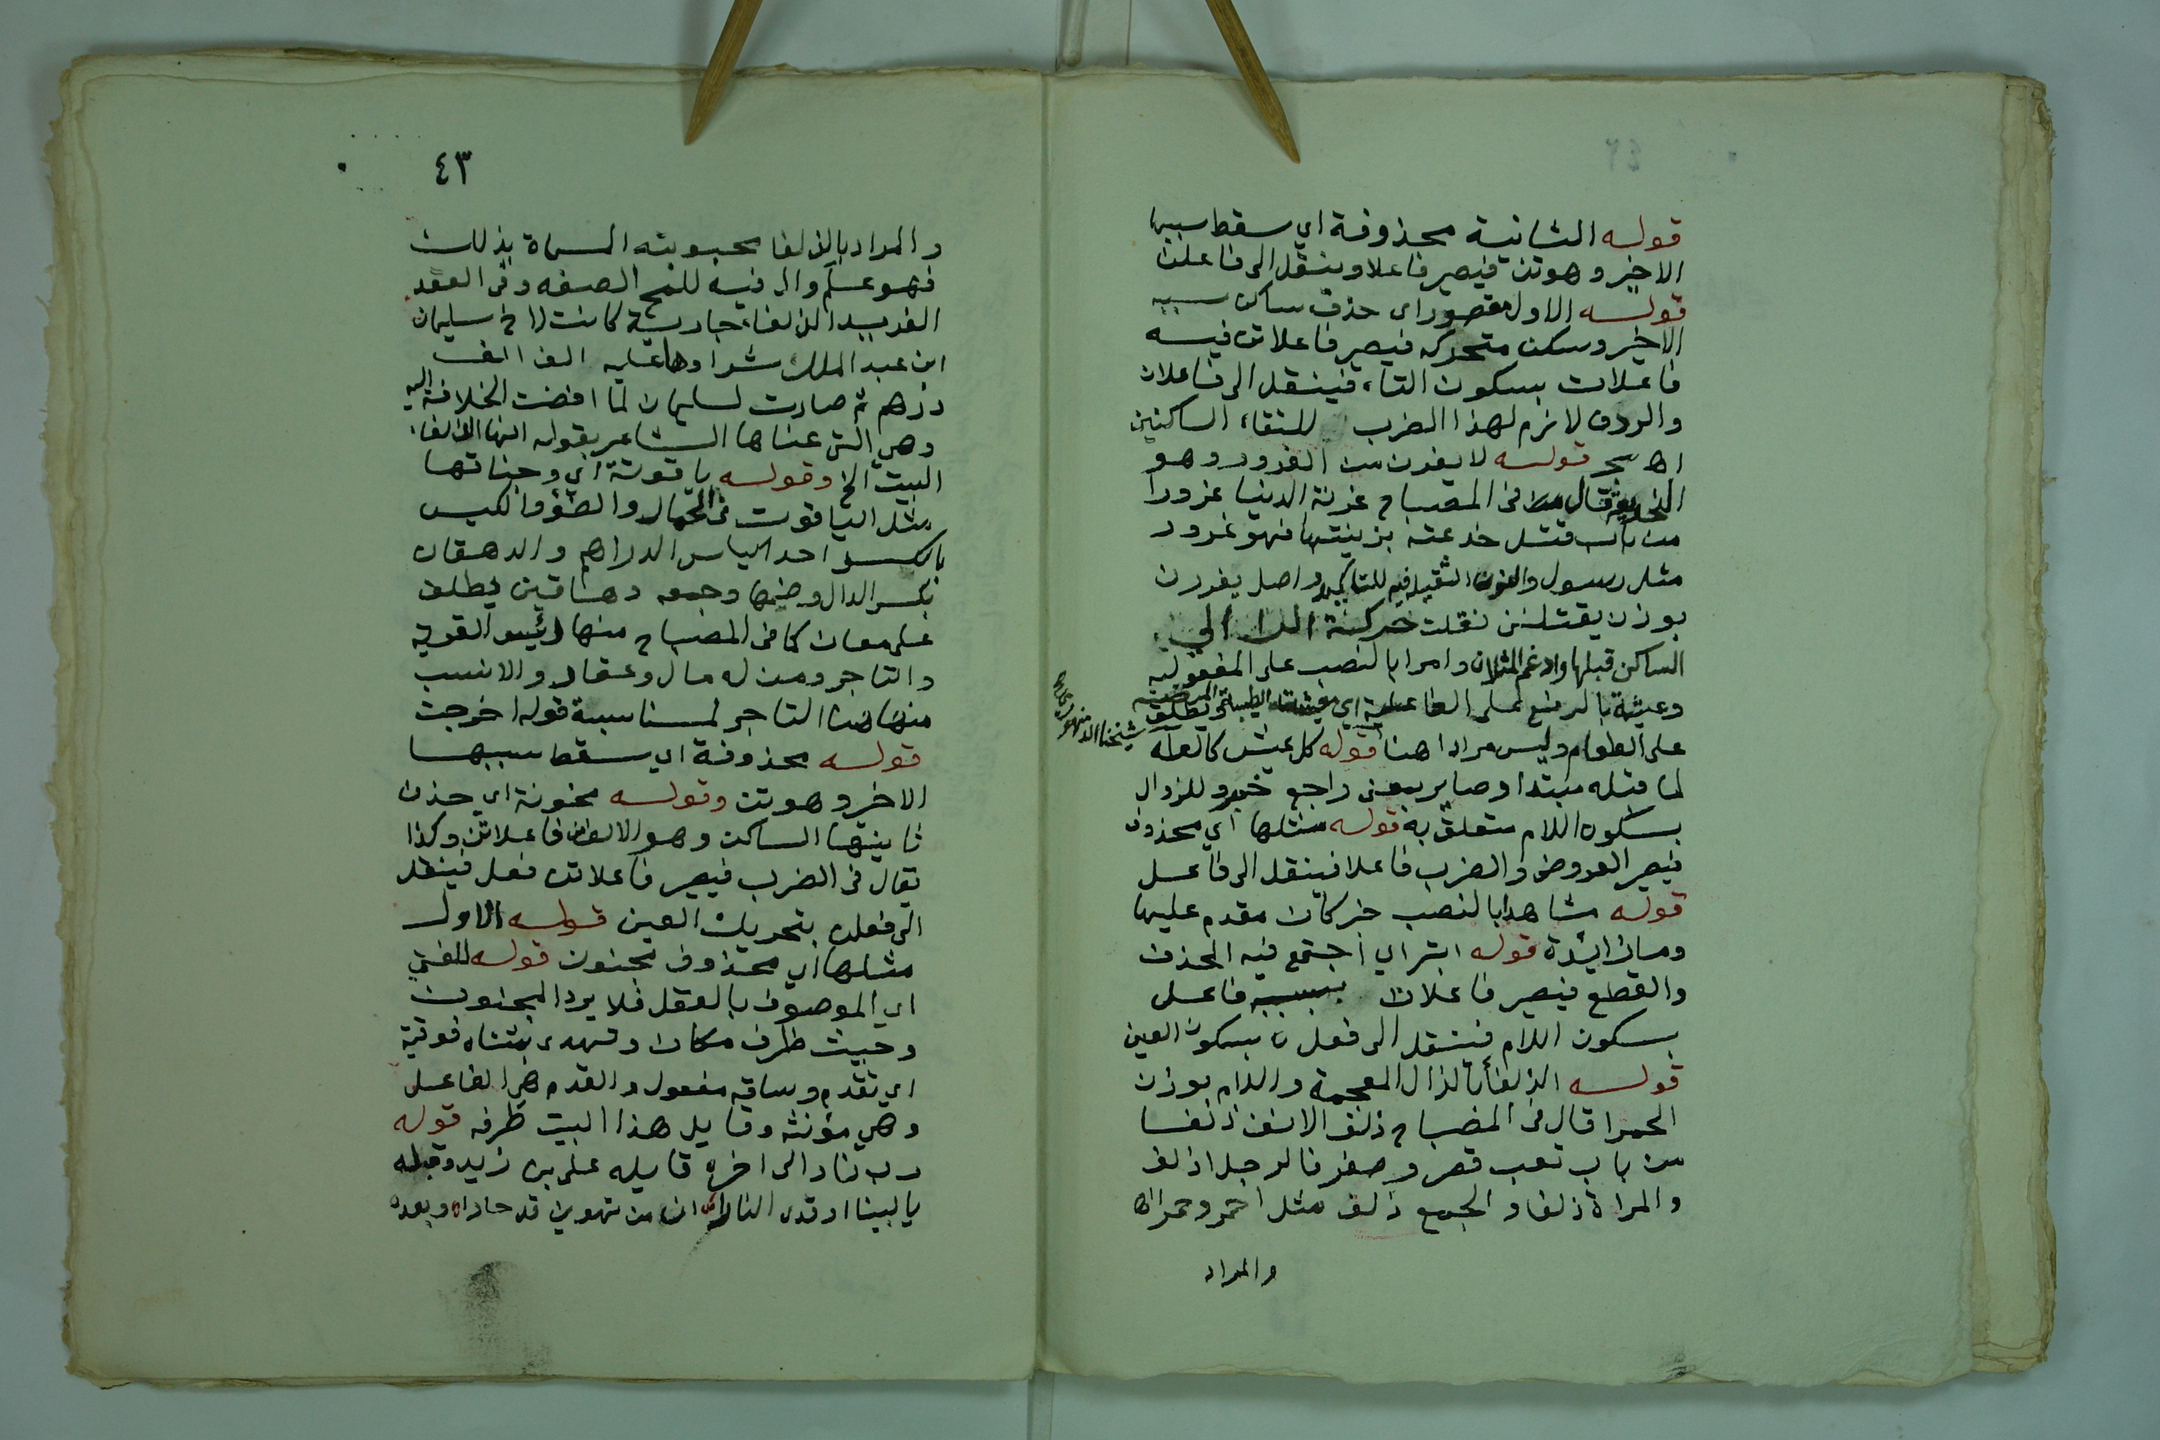 قوله الثانية محذوفة اي سقط سببها
الاخير وهو تن فيصير فاعلا وينقل الى فاعلن
قوله الاول مقصور اى حذف ساكن سببه
الاخير وسكن متحركه فيصير فاعلاتن فيه
فاعلات بسكون التاء، فينقل الى فاعلان
والردف لازم لهذا الضرب للتقاء الساكنين
اه سجـ قوله لا يغرن من الغرور وهو
الخديعة قال فى المصباح غرته الدنيا غرورا
من باب قتل خدعته بزينتها فهو غرور
مثل رسول والنون الثقيلة فيه للتاكيد واصل يغرن
بوزن يقتلن نقلت حركة الرا الي
الساكن قبلها وادغم المثلان وامرا بالنصب على المفعولية
وعيشة بالرفع على الفاعلية اي معيشته الطيبة المرضية ويطلق
شيخنا الدمنهوري
على الطعام وليس مرادا هنا قوله كل عيش كالعلة
لما قبله مبتدا وصاير بمعنى راجع خبر وللزوال
بسكون اللام متعلق به قوله مثلها اي محذوف
فيصير العروض والضرب فاعلا فينقل الى فاعل
قوله شاهدا بالنصب خبر كان مقدم عليها
وما زائدة قوله ابتر اي اجتمع فيه الحذف
والقطع فيصير فاعلاتن بسببه فاعل
بسكون اللام فينتقل الى فعلن بسكون العين
قوله الذلفا بالذال المعجمة واللام بوزن
الحمرا قال فى المصباح ذلف الانف ذلفا
من باب تعب قصر وصغر فالرجل اذلف
والمراة ذلفا والجمع ذلف مثل احمر وحمرا اه
والمراد
٤٣
والمراد بالذلفا محبوبته المسماة بذلك
فهو علم وال فيه للمح الصفه وفى العقد
الفريد الذلفاء جارية كانت لاخ سليمان
ابن عبد الملك شراوها عليه الف الف
درهم ثم صارت لسليمان لما افضت الخلافة اليه
وهي التى عناها الشاعر بقوله انما الذلفاء
البيت الخ وقوله ياقوتة اي وجناتها
مثل الياقوت فى الجمال والصفو والكيس
بالكسر احد اكياس الدراهم والدهقان
بكسر الدال وضمها وجمعه دهاقين يطلق
على معان كما فى المصباح منها رئيس القرية
والتاجر ومن له مال وعقار والانسب
منها هنا التاجر لمناسبة قوله اخرجت
قوله محذوفة اي سقط سببها
الاخر وهو تن وقوله مخبونة اي حذف
ثانيها الساكن وهو الالف من فاعلاتن وكذا
يقال فى الضرب فيصير فاعلاتن فعل فينقل
الى فعلن بتحريك العين قوله الاول
مثلها اي محذوف مخبون قوله للفتى
اي الموصوف بالعقل فلا يرد المجنون
وحيث ظرف مكان وتهدى بمثناه فوقية
اي تقدم وساقه مفعول والقدم هي الفاعل
وهي مؤنثه وقايل هذا البيت طرفه قوله
رب نار الى اخره قايله على بن زيد وقبله
يا لبينا اوقدى النارا ان من تهوين قد حارا وبعده